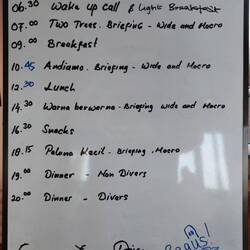 06.30 Wake up Call & Light Breakfast
07.00 Two Trees. Briefing - Wide and Macro
09.00 Breakfast
10.45 Andiamo. Briefing - Wide and Macro
12.30 Lunch
14.30 Warna berwarna - Briefing wide and Macro
16.30 Snacks
18.15 Pelona Kecil - Briefing, Macro
19.00 Dinner - Non Divers
20.00 Dinner - Divers
Bagus!